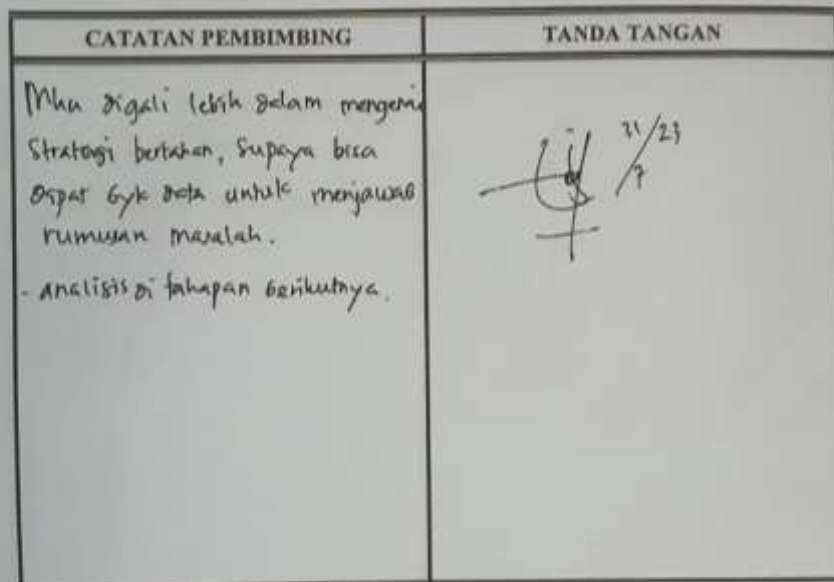 CATATAN PEMBIMBING
TANDA TANGAN
digali lebih dalam mengenai
Strategi bertahan, supaya bisa
dapat byk data untuk menjawab
rumusan masalah.
- analisis di tahapan berikutnya.
31/23
7